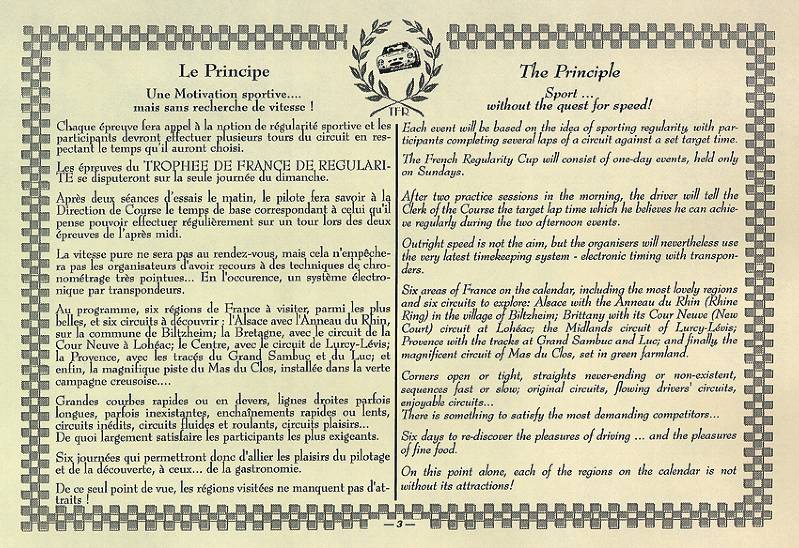 TFR
Le Principe
Une Motivation sportive....
mais sans recherche de vitesse !
Chaque épreuve fera appel à la notion de régularité sportive et les
participants devront effectuer plusieurs tours du circuit en res-
pectant le temps qu'il auront choisi.
Les épreuves du TROPHEE DE FRANCE DE REGULARI-
TE se disputeront sur la seule journée du dimanche.
Après deux séances d'essais le matin, le pilote fera savoir à la
Direction de Course le temps de base correspondant à celui qu'il
pense pouvoir effectuer régulièrement sur un tour lors des deux
épreuves de l'après midi.
La vitesse pure ne sera pas au rendez-vous, mais cela n'empêche-
ra pas les organisateurs d'avoir recours à des techniques de chro-
nométrage très pointues... En l'occurence, un système électro-
nique par transpondeurs.
Au programme, six régions de France à visiter, parmi les plus
belles, et six circuits à découvrir : l'Alsace avec l'Anneau du Rhin,
sur la commune de Biltzheim; la Bretagne, avec le circuit de la
Cour Neuve à Lohéac; le Centre, avec le circuit de Lurcy-Lévis;
la Provence, avec les tracés du Grand Sambuc et du Luc; et
enfin, la magnifique piste du Mas du Clos, installée dans la verte
campagne creusoise....
Grandes courbes rapides ou en devers, lignes droites parfois
longues, parfois inexistantes, enchaînements rapides ou lents,
circuits inédits, circuits fluides et roulants, circuits plaisirs...
De quoi largement satisfaire les participants les plus exigeants.
Six journées qui permettront donc d'allier les plaisirs du pilotage
et de la découverte, à ceux... de la gastronomie.
De ce seul point de vue, les régions visitées ne manquent pas d'at-
traits !
The Principle
Sport ...
without the quest for speed!
Each event will be based on the idea of sporting regularity, with par-
ticipants completing several laps of a circuit against a set target time.
The French Regularity Cup will consist of one-day events, held only
on Sundays.
After two practice sessions in the morning, the driver will tell the
Clerk of the Course the target lap time which he believes he can achie-
ve regularly during the two afternoon events.
Outright speed is not the aim, but the organisers will nevertheless use
the very latest timekeeping system - electronic timing with transpon-
ders.
Six areas of France on the calendar, including the most lovely regions
and six circuits to explore: Alsace with the Anneau du Rhin (Rhine
Ring) in the village of Biltzheim; Brittany with its Cour Neuve (New
Court) circuit at Lohéac; the Midlands circuit of Lurcy-Lévis;
Provence with the tracks at Grand Sambuc and Luc; and finally, the
magnificent circuit of Mas du Clos, set in green farmland.
Corners open or tight, straights never-ending or non-existent,
sequences fast or slow; original circuits, flowing drivers' circuits,
enjoyable circuits...
There is something to satisfy the most demanding competitors...
Six days to re-discover the pleasures of driving ... and the pleasures
of fine food.
On this point alone, each of the regions on the calendar is not
without its attractions!
— 3 —